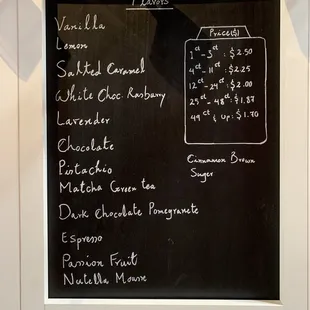 Flavors
Vanilla
Lemon
Salted Caramel
White Choc. Rasbarry
Lavender
Chocolate
Pistachio
Matcha Green tea
Dark Chocolate Pomegranete
Espresso
Passion Fruit
Nutella Mousse
Price($)
1st - 3rd : $2.50
4th - 11th : $2.25
12th - 24th : $2.00
25th - 48th : $1.87
49th & Up : $1.70
Cinnamon Brown
Suger